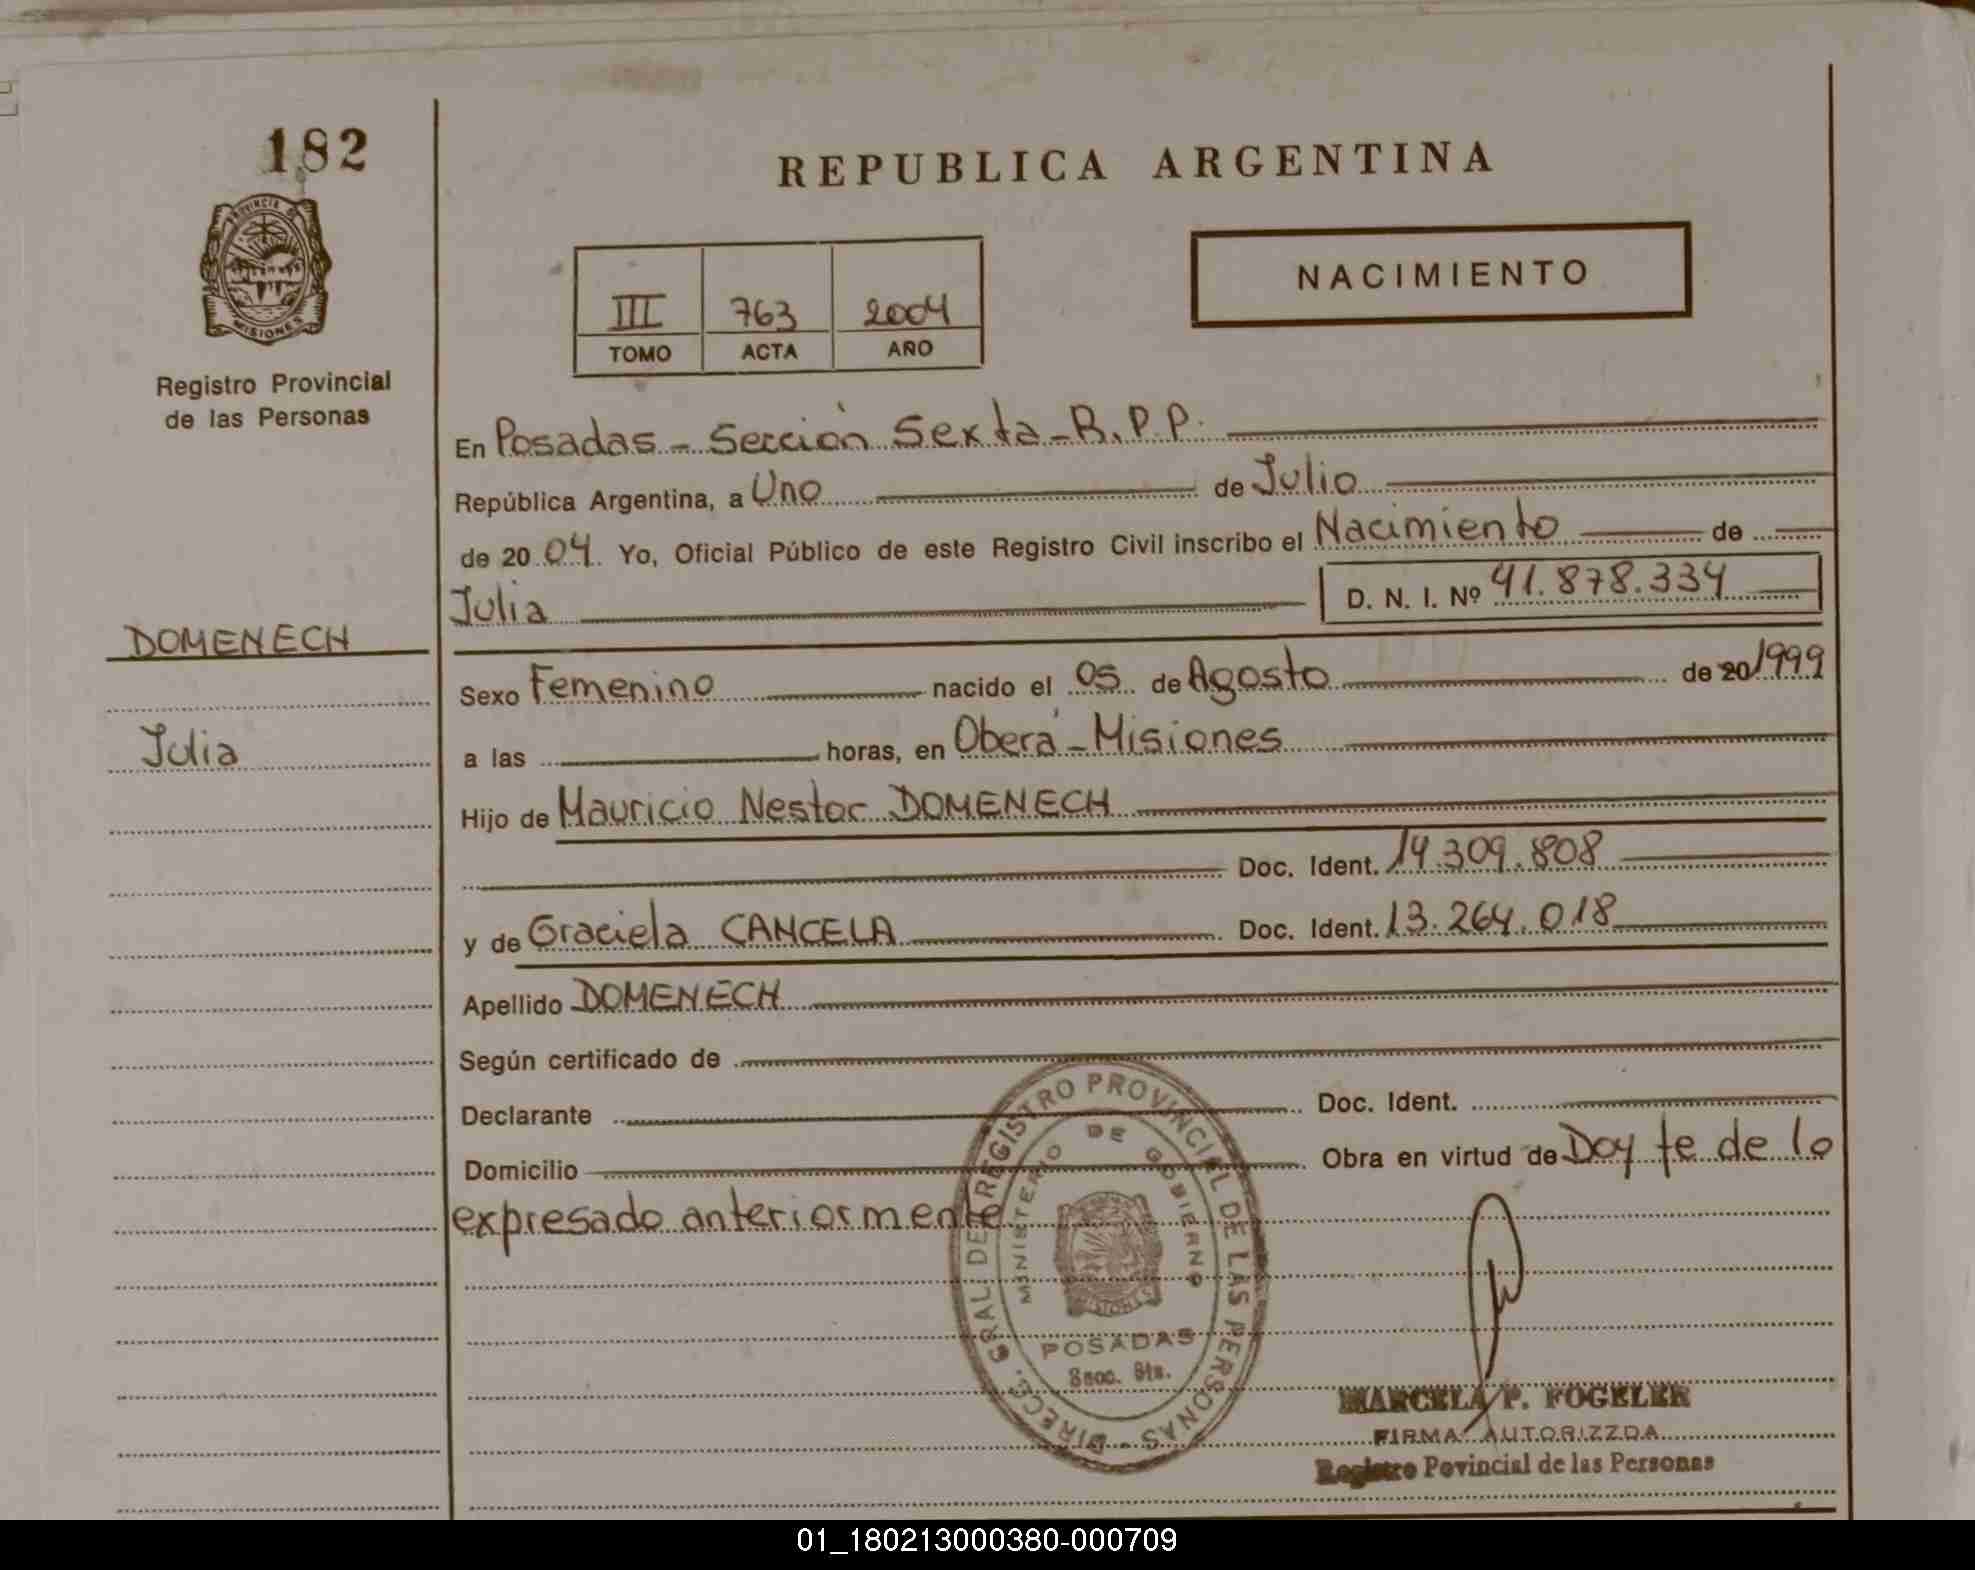 182
PROVINCIA DE
MISIONES
Registro Provincial
de las Personas
DOMENECH
Julia
REPUBLICA ARGENTINA
III 763 2004
TOMO ACTA AÑO
NACIMIENTO
En Posadas - Sección Sexta - R.P.P.
República Argentina, a Uno de Julio
de 20 04. Yo, Oficial Público de este Registro Civil inscribo el Nacimiento de
Julia D. N. I. Nº 41.878.334
Sexo Femenino nacido el 05 de Agosto de 20/1999
a las horas, en Oberá - Misiones
Hijo de Mauricio Nestor DOMENECH
Doc. Ident. 14.309.808
y de Graciela CANCELA Doc. Ident. 13.264.018
Apellido DOMENECH
Según certificado de
Declarante Doc. Ident.
Domicilio Obra en virtud de Doy fe de lo
expresado anteriormente
DIRECC. GRAL DEL REGISTRO PROVINCIAL DE LAS PERSONAS
MINISTERIO DE GOBIERNO
MISIONES
POSADAS
Secc. 6ta.
MARCELA P. FOGELER
FIRMA AUTORIZZDA
Registro Povincial de las Personas
01_180213000380-000709